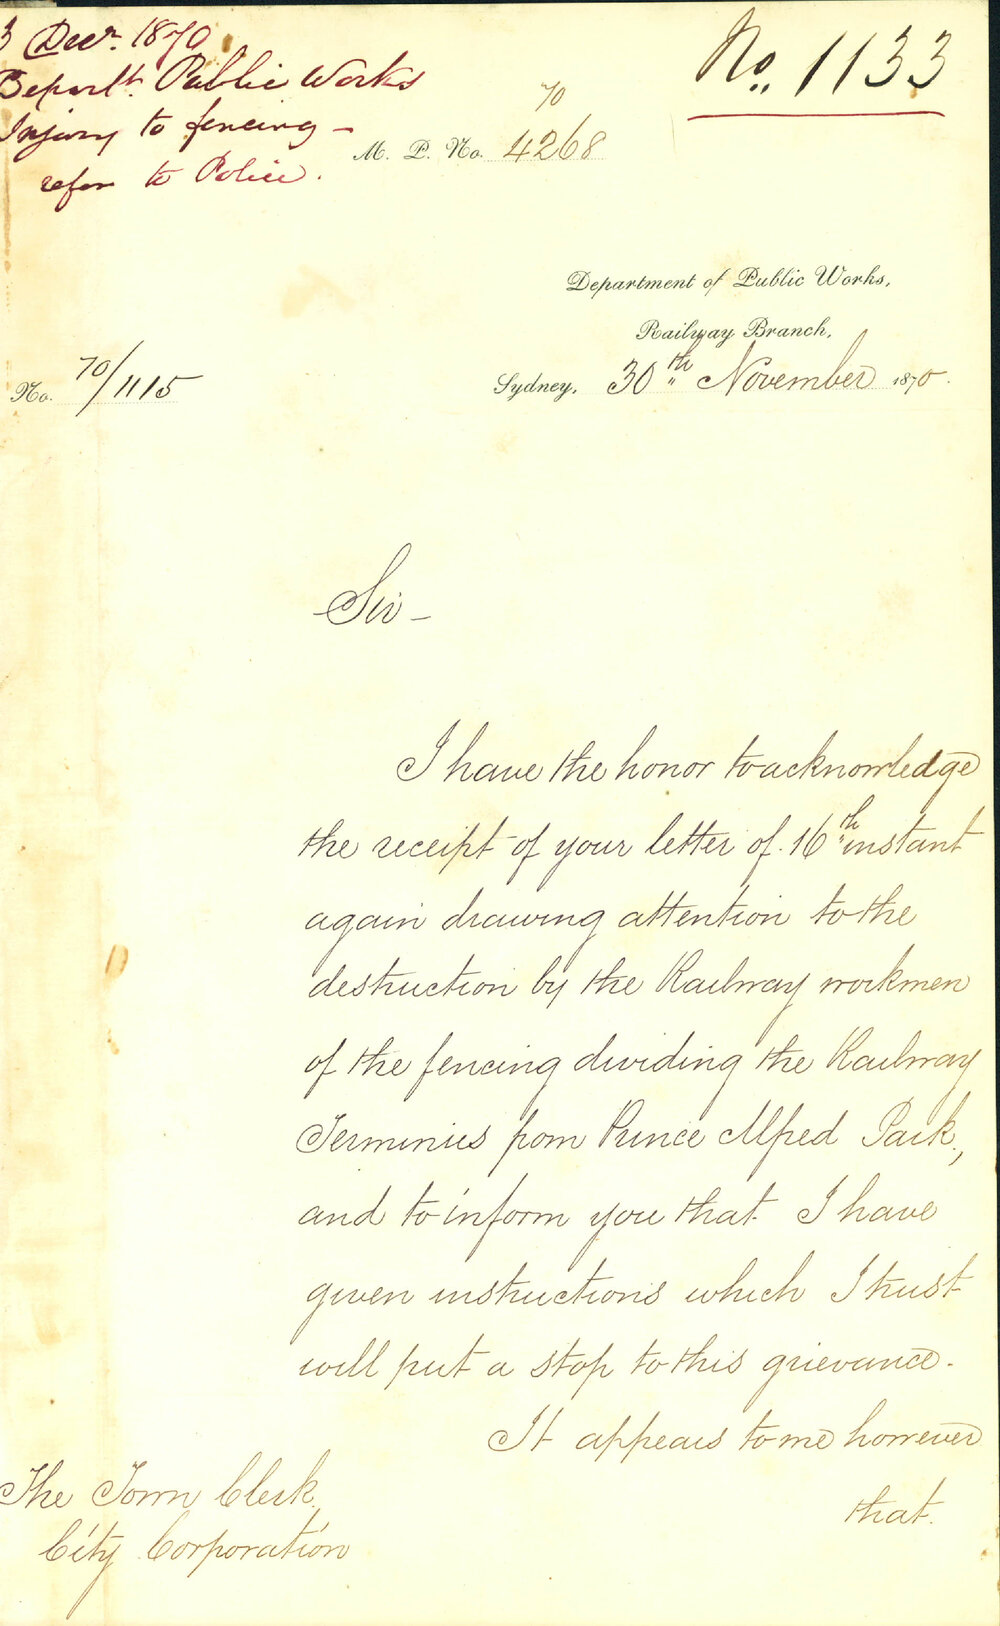 3 Decr. 1870
Departt. Public Works
Injury to fencing –
refer to Police.
No. 1133
70
M. P. No. 4268
Department of Public Works,
Railway Branch,
No. 70/1115
Sydney, 30th November 1870.
Sir –
I have the honor to acknowledge
the receipt of your letter of 16th instant
again drawing attention to the
destruction by the Railway workmen
of the fencing dividing the Railway
Terminus from Prince Alfred Park,
and to inform you that I have
given instructions which I trust
will put a stop to this grievance.
It appears to me however
that.
The Town Clerk,
City Corporation